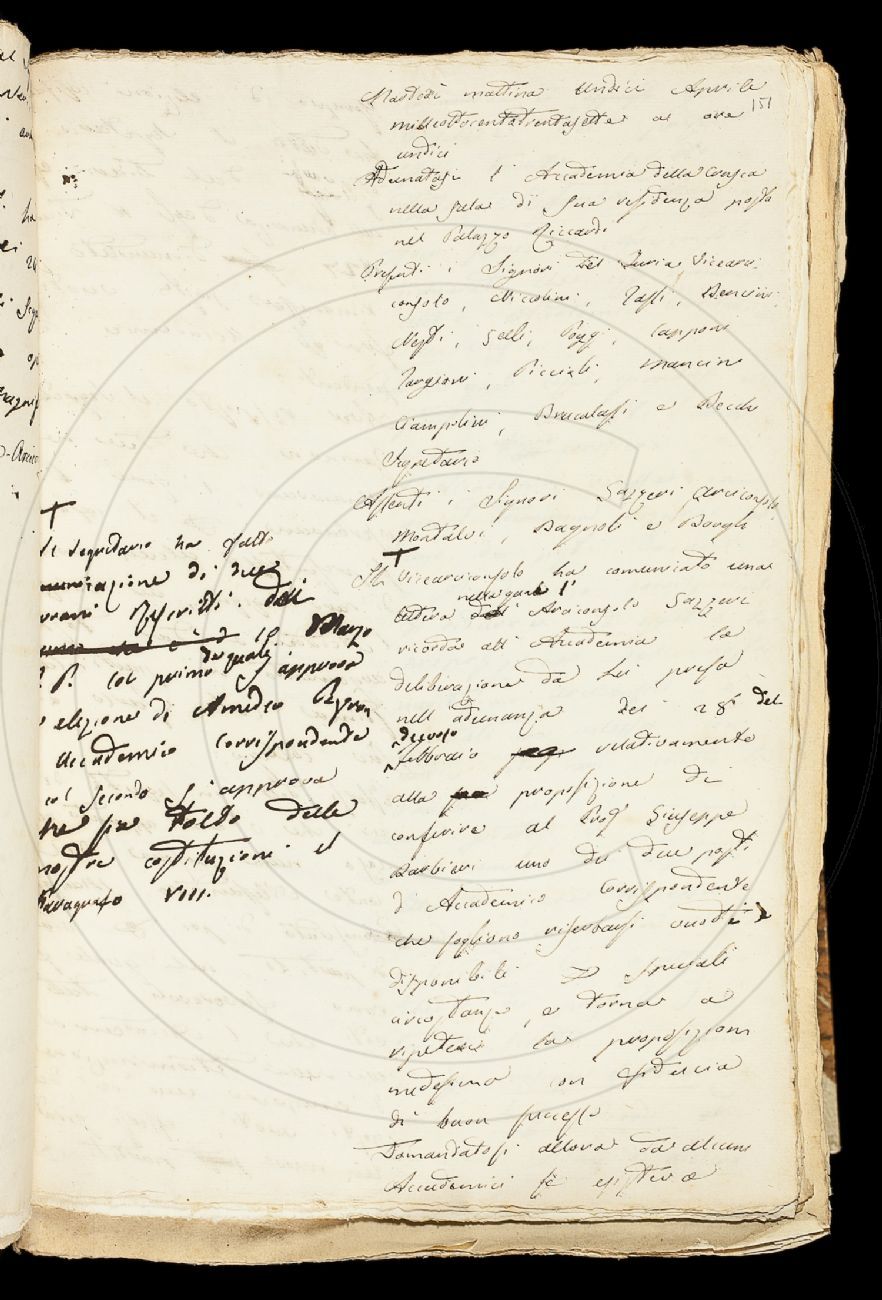 151
Martedi mattina Undici Aprile
milleottocentotrentasette a ore
undici
Adunatasi l'Accademia della Crusca
nella sala di sua residenza posta
nel Palazzo Riccardi
Presenti i Signori Del Furia Vicearci-
consolo, Niccolini, Tassi, Bencini,
Nesti, Gelli, Poggi, Capponi
Targioni, Picciali, Mancini
Ciampolini, Brucalassi e Becchi
Segretario
Assenti i Signori Gazzeri Arciconsolo,
Montalvi, Bagnoli e Borghi
Il Vicearciconsolo ha comunicato una
nella quale l'
lettera dell' Arciconsolo Gazzeri
ricorda all' Accademia la
deliberazione da Lei presa
nell' adunanza dei 28 del
decorso
febbraio relativamente
alla proposizione di
conferire al Prof Giuseppe
Barbieri uno dei due posti
d Accademico Corrispondente
che sogliono riserbarsi vuoti e
disponibili speciali
circostanze, e torna a
ripetere la proposizione
medesima con fiducia
di buon successo
Domandatosi allora da alcuni
Accademici se esisteva
Segretario ha fatto
di due
Rescritti dei
18 Marzo
P. P. col primo de quali si approva
elezione di Amedeo Peyron
Accademico Corrispondente
col secondo si approva
che sia tolto dalle
nostre costituzioni il
Paragrafo VIII.